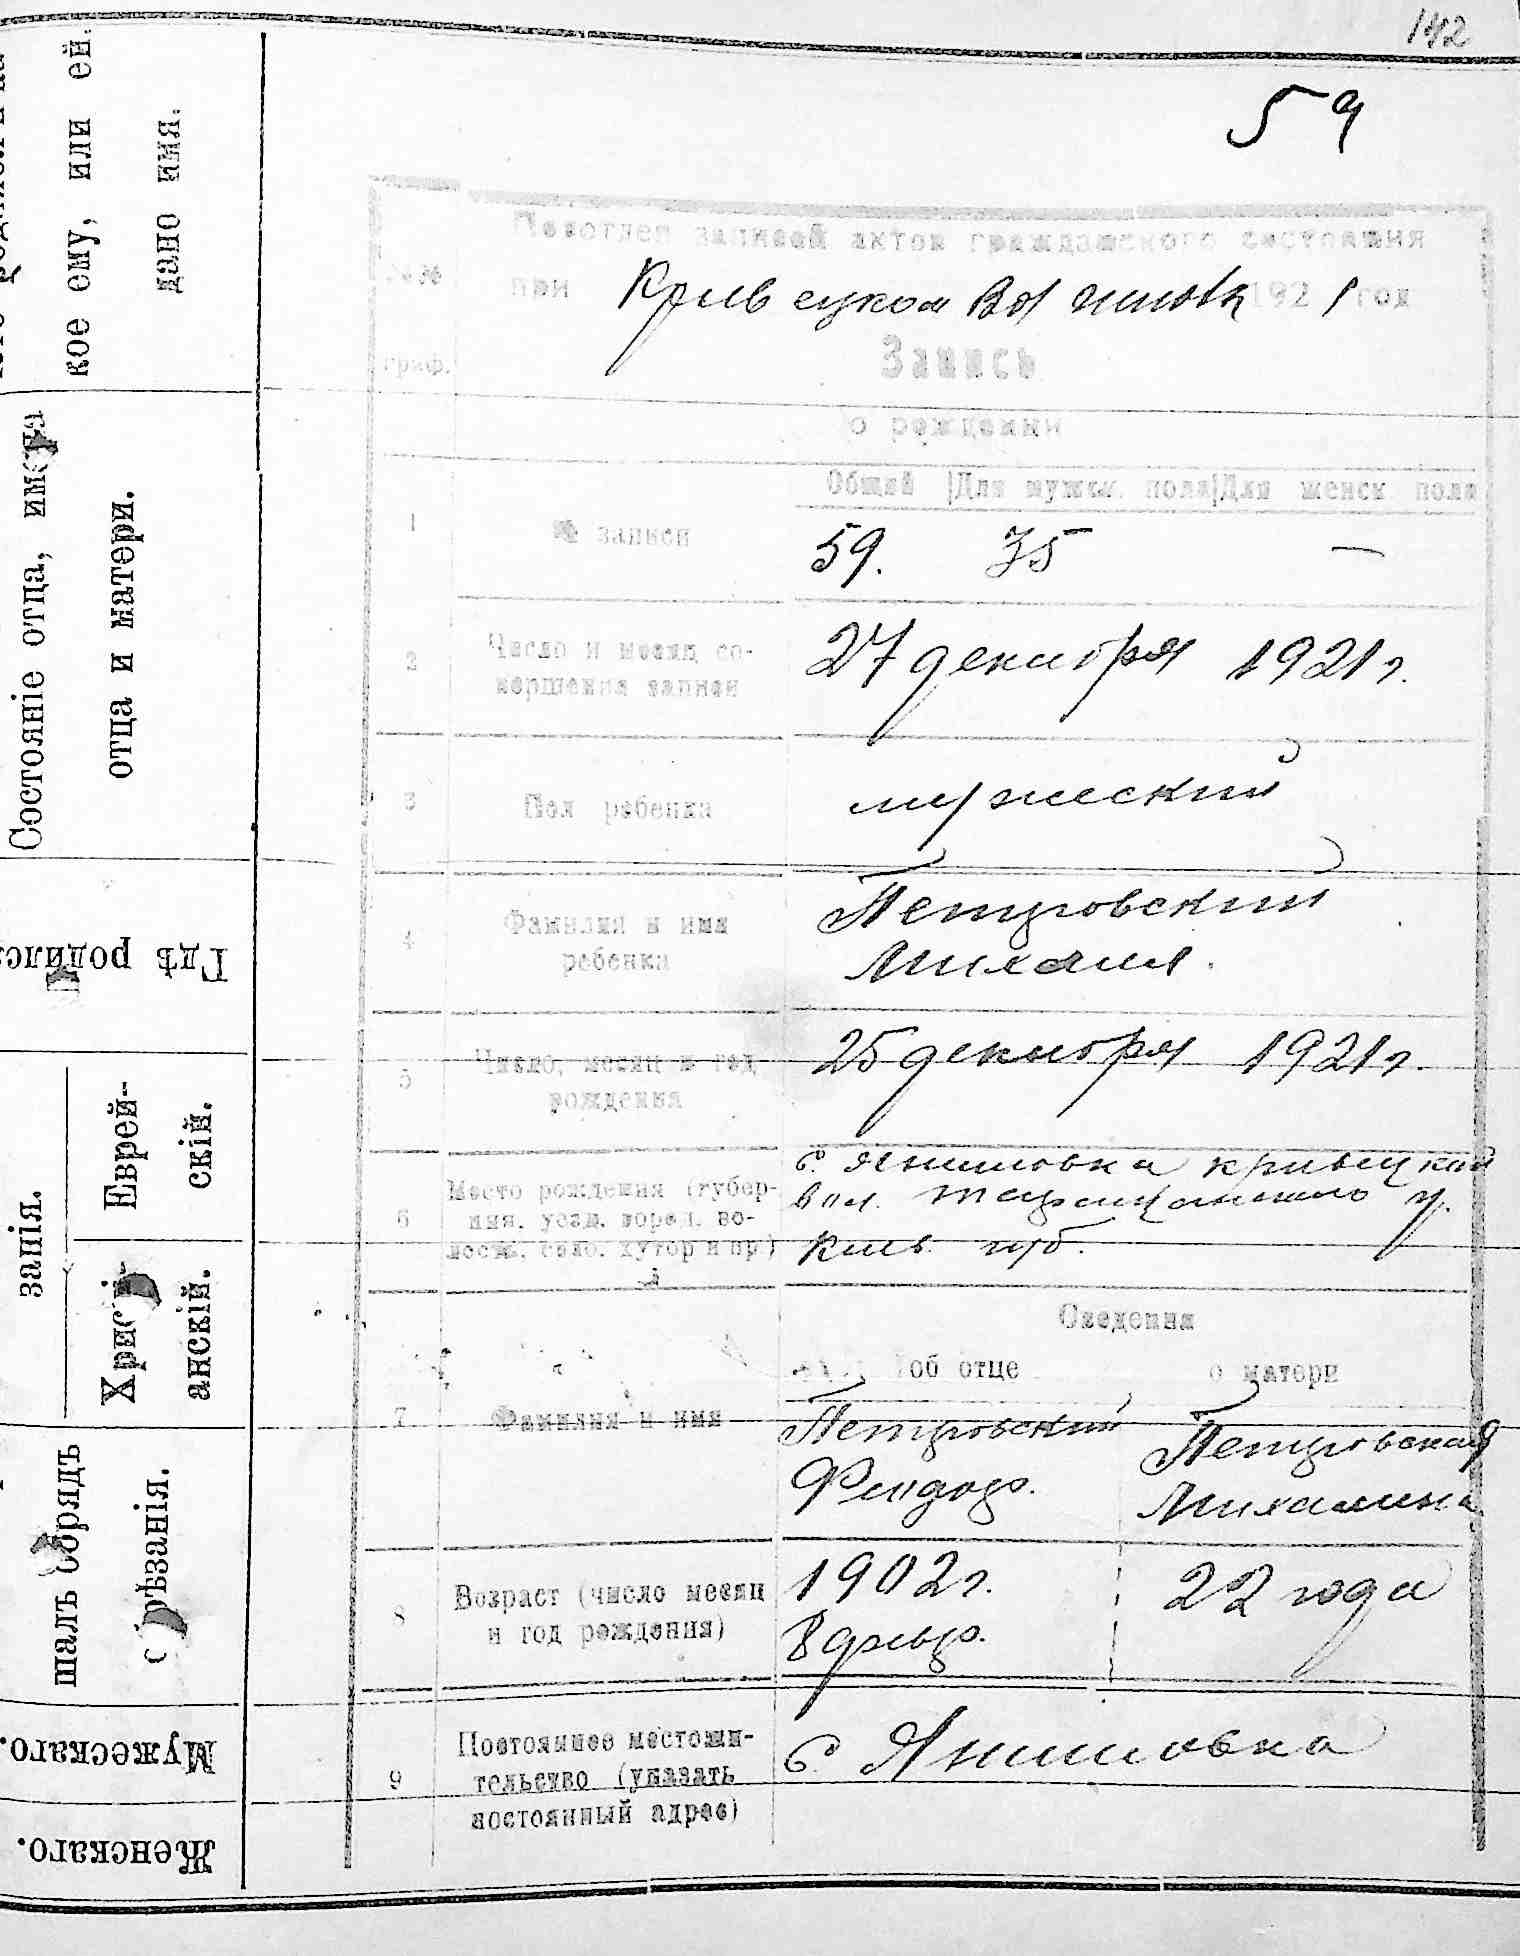 142
59
Подотдел записей актов гражданского состояния
при Кривецком Вол 1921 год
№№ граф.
Запись
о рождении
Общий Для мужск. пола Для женск. пола
1 № записи 59. 35 —
2 Число и месяц со-
вершения записи 27 декабря 1921 г.
3 Пол ребенка мужеский
4 Фамилия и имя
ребенка Петровский
Михаил.
5 Число, месяц и год
рождения 25 декабря 1921 г.
6 Место рождения (губер-
ния, уезд, город, во-
лость, село, хутор и пр.)
с. Янишовка Кривецкой
вол. Таращанского у.
Киев. губ.
Сведения
об отце о матери
7 Фамилия и имя
Петровский Петровская
Феодор. Михалина
8 Возраст (число месяц
и год рождения)
1902 г. 22 года
8 февр.
9 Постоянное местожи-
тельство (указать
постоянный адрес)
с. Янишовка
кое ему, или ей,
дано имя.
Состояніе отца, имена
отца и матери.
Гдѣ родился
занія.
Еврей-
скій.
Христі-
анскій.
шалъ обрядъ
обрѣзанія.
Мужескаго.
Женскаго.